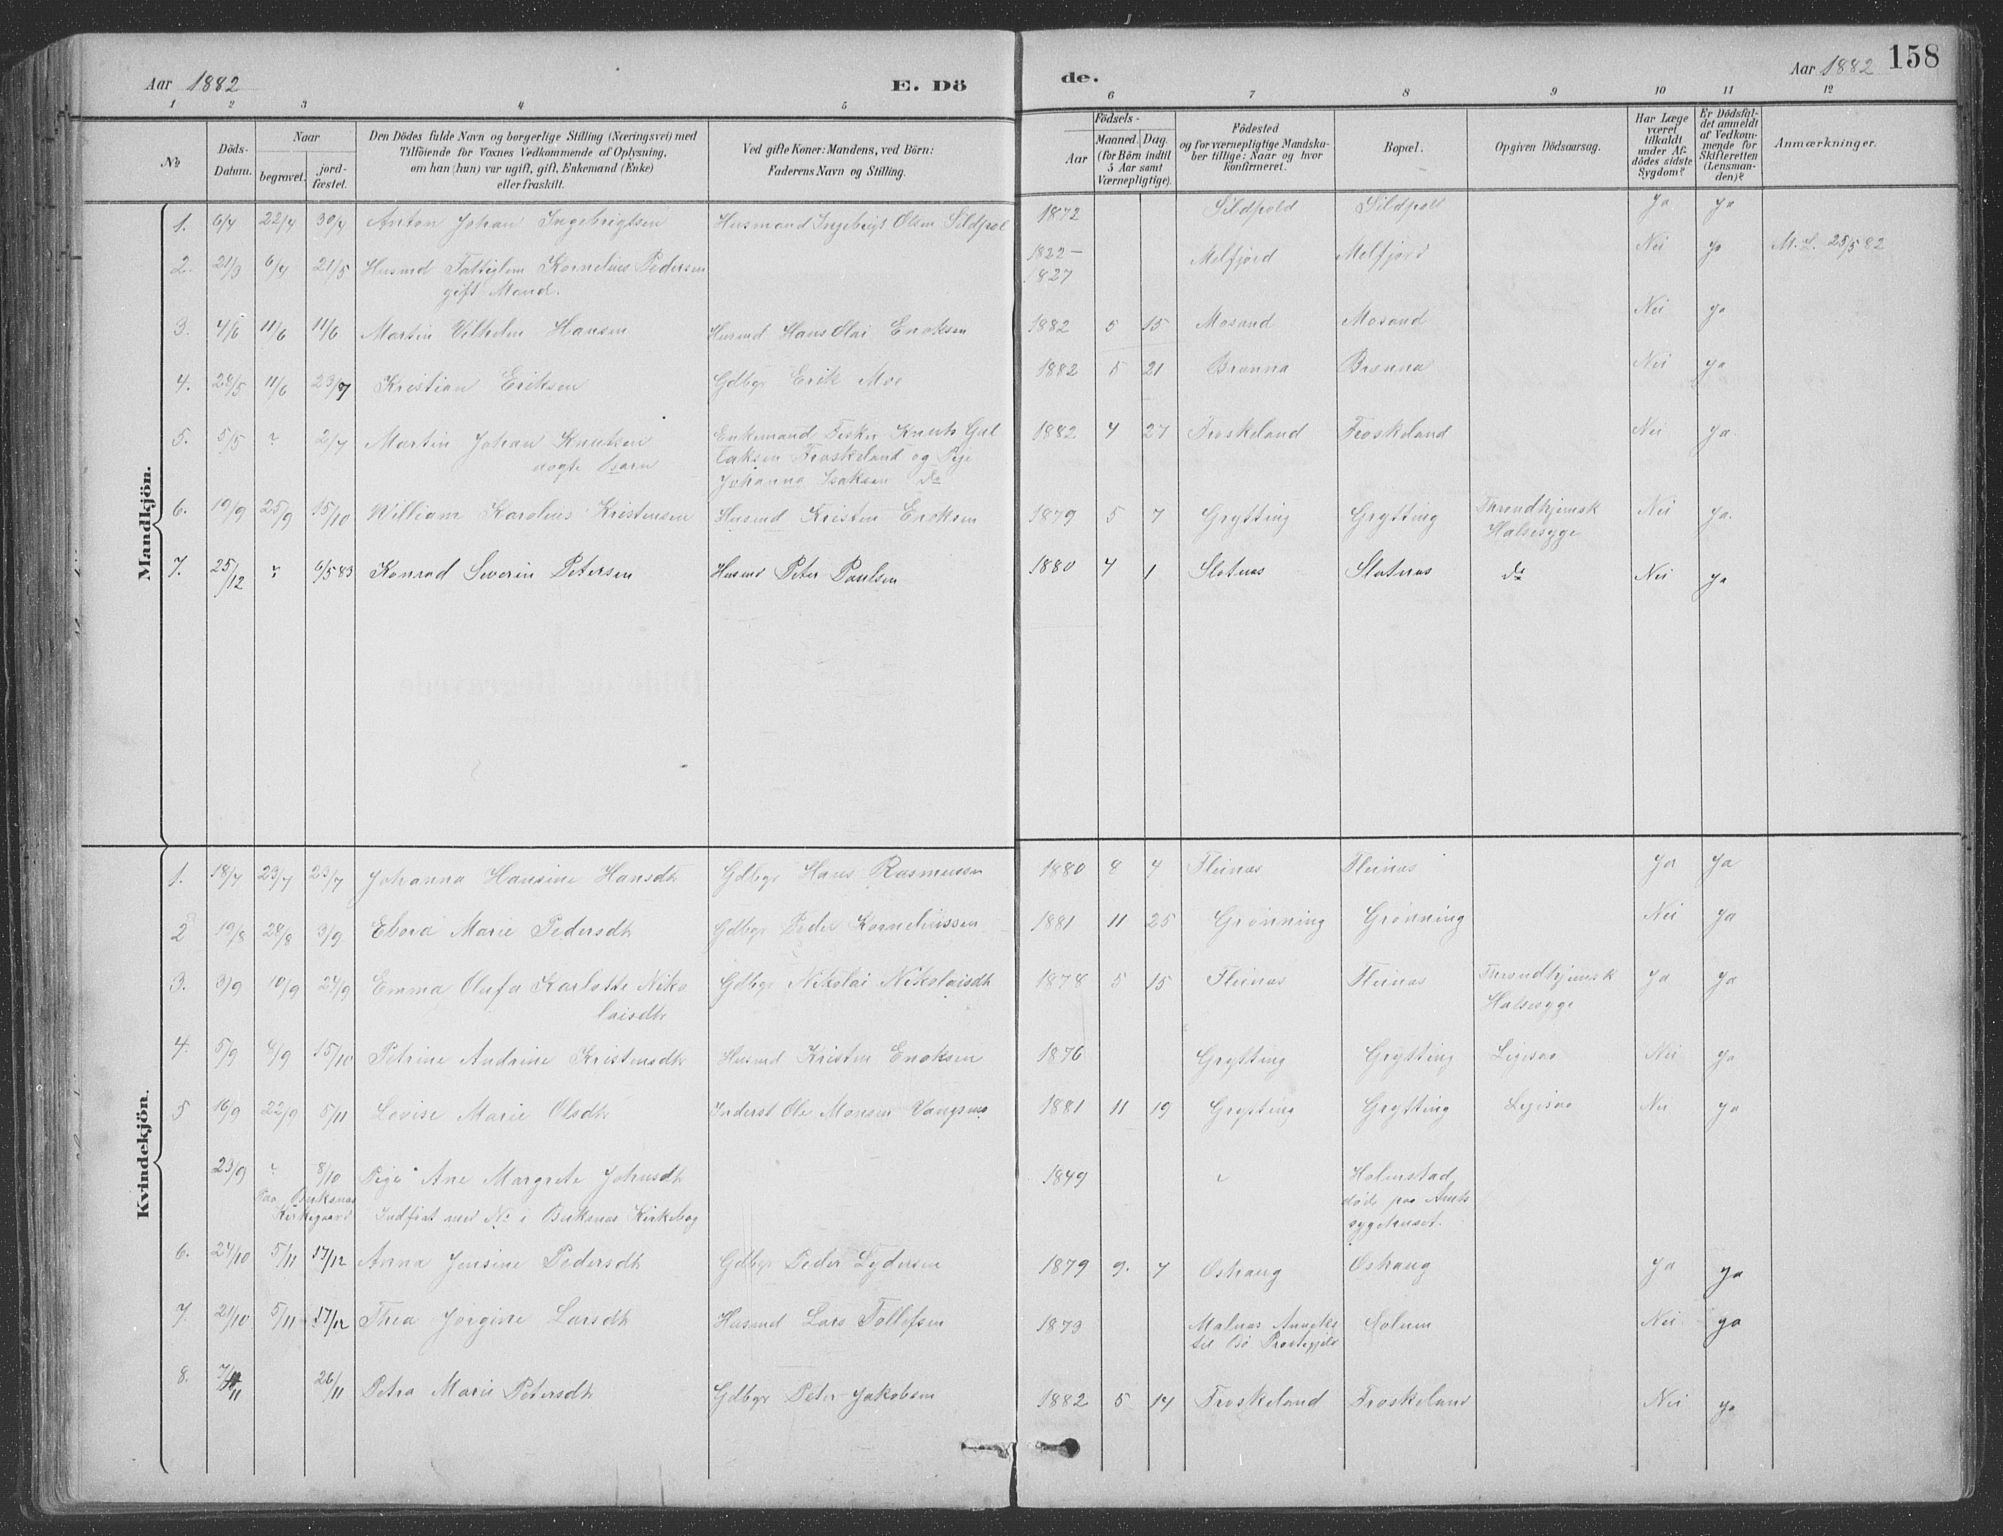 158
Aar 1882 E. Dö de. Aar 1882
1 2 3 4 5 6 7 8 9 10 11 12
No Döds-Datum. Naar begravet. jord-fæstet. Den Dödes fulde Navn og borgerlige Stilling (Næringsvei) med Tilföiende for Voxnes Vedkommende af Oplysning, om han (hun) var ugift, gift, Enkemand (Enke) eller fraskilt. Ved gifte Koner: Mandens, ved Börn: Faderens Navn og Stilling. Födsels- Aar Maaned. Dag. (for Börn indtil 5 Aar samt Værnepligtige). Födested og for værnepligtige Mandskaber tillige: Naar og hvor konfirmeret. Bopæl. Opgiven Dödsaarsag. Har Læge været tilkaldt under Afdödes sidste Sygdom? Er Dödsfaldet anmeldt af Vedkommende for Skifteretten (Lensmanden)? Anmærkninger.
Mandkjön.
1. 6/4 22/4 30/4 Anton Johan Ingebrigtsen Husmand Ingebrigt Olsen Sildpol 1872 Sildpold Sildpoll Ja Ja
2. 21/3 6/4 21/5 Husmd Fattiglem Kornelius Pedersen 1822– Melfjord Melfjord Nei Ja M. L. 25/5 82
gift Mand. 1827
3. 4/6 11/6 11/6 Martin Vilhelm Hansen Husmd Hans Olai Enoksen 1882 5 15 Mosand Mosand Nei Ja
4. 28/5 11/6 23/7 Kristian Eriksen Gdbgr Erik Moe 1882 5 21 Brønna Brønna Nei Ja
5. 5/5 " 2/7 Martin Johan Knutsen Enkemand Fisker Knut Gul 1882 4 27 Froskeland Froskeland Nei Ja.
uægte Barn laksen Froskeland og Pige
Johanna Isaksen do
6. 19/9 25/9 15/10 William Karolius Kristensen Husmd Kristen Enoksen 1879 5 7 Grytting Grytting Throndhjemsk Nei Ja.
Halssyge
7. 25/12 " 6/5 83 Konrad Severin Petersen Husmd Peter Paulsen 1880 4 1 Slotnes Slotnes do Nei Ja
Kvindekjön.
1. 18/7 23/7 23/7 Johanna Hansine Hansdtr Gdbgr Hans Rasmussen 1880 8 4 Fleines Fleines Ja Ja
2 19/8 28/8 3/9 Ebora Marie Pedersdtr Gdbgr Peder Korneliussen 1881 11 25 Grønning Grønning Nei Ja
3. 3/9 10/9 24/9 Emma Olufa Karlotte Niko Gdbgr Nikolai Nikolaisdtr 1878 5 15 Fleines Fleines Throndhjemsk Ja Ja
laisdtr Halssyge
4. 5/9 /9 15/10 Petrine Andrine Kristensdtr Husmd Kristen Enoksen 1876 Grytting Grytting Ligesaa Nei Ja
5 16/9 22/9 5/11 Lovise Marie Olsdtr Inderst Ole Monsen Vangsnes 1881 11 19 Grytting Grytting Ligesaa Nei Ja
23/9 " 8/10 Pige Ane Margrete Johnsdtr 1849 " Holmstad,
Paa Buksnes død paa Amts
Kirkegaard Indført med No i Buksnes Kirkebog sygehuset.
6. 24/10 5/11 17/12 Anna Jensine Pedersdtr Gdbgr Peder Lydersen 1879 9. 7 Oshaug Oshaug Ja Ja
7. 21/10 5/11 17/12 Thea Jørgine Larsdtr Husmd Lars Tollefsen 1879 Malnes Annex Holum Nei Ja
til Bø Prestegjeld
8. 7/11 26/11 Petra Marie Petersdtr Gdbgr Peter Jakobsen 1882 5 14 Froskeland Froskeland Nei Ja